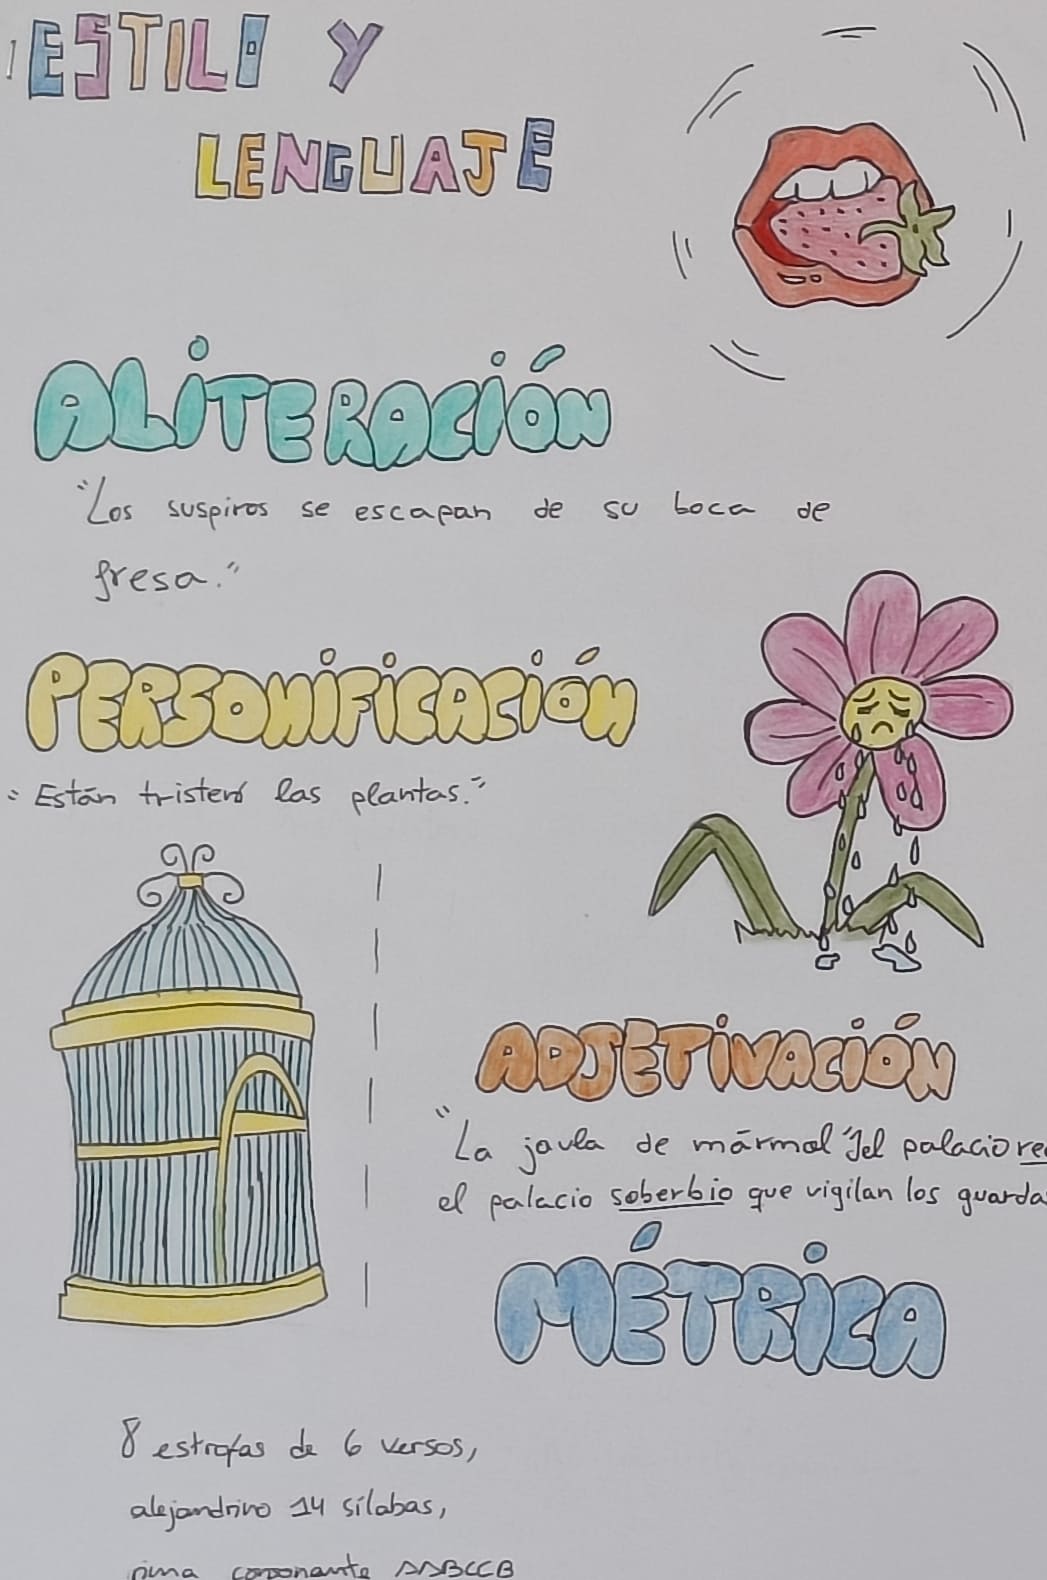 ESTILO Y
LENGUAJE
ALITERACIÓN
"Los suspiros se escapan de su boca de
fresa."
PERSONIFICACIÓN
"Están tristes las plantas."
ADJETIVACIÓN
"La jaula de mármol del palacio
el palacio soberbio que vigilan los
MÉTRICA
8 estrofas de 6 versos,
alejandrino 14 sílabas,
rima consonante AABCCB